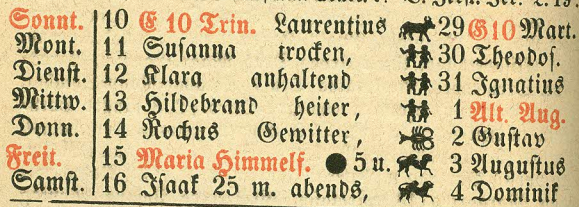 Sonnt. 10 E 10 Trin. Laurentius 29 G10 Mart.
Mont. 11 Susanna trocken, 30 Theodos.
Dienst. 12 Klara anhaltend 31 Ignatius
Mittw. 13 Hildebrand heiter, 1 Alt. Aug.
Donn. 14 Rochus Gewitter, 2 Gustav
Freit. 15 Maria Himmelf. ● 5 u. 3 Augustus
Samst. 16 Isaak 25 m. abends, 4 Dominik